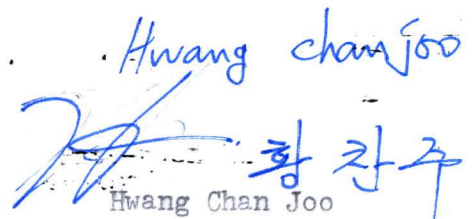 Hwang chanjoo
황찬주
Hwang Chan Joo